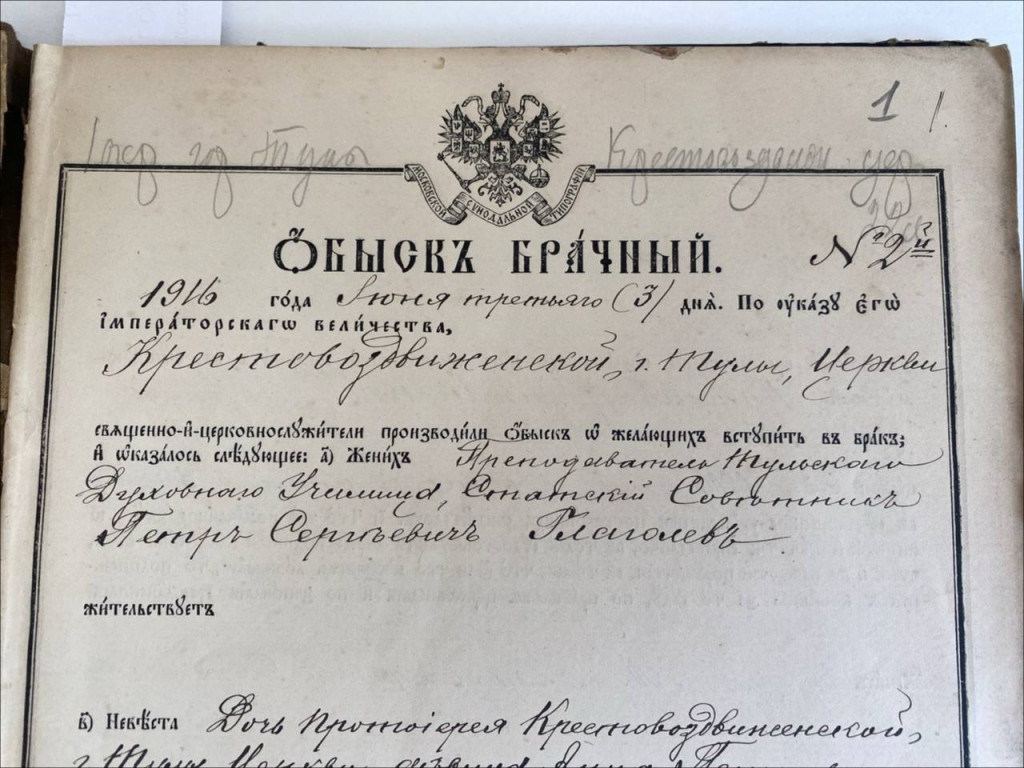 1 1
гор Тулы Крестовоздвижен цер
МОСКОВСКОЙ СѴНОДАЛЬНОЙ ТИПОГРАФІИ
Ѻ҆БЫСКЪ БРА́ЧНЫЙ. № 2й
1916 го́да Іюня третьяго (3) днѧ̀. По ᲂу҆ка́зꙋ є҆гѡ̀
і҆мпера́торскагѡ вели́чества,
Крестовоздвиженской, г. Тулы, Церкви
свѧще́нно-и҆-церковнослꙋжи́тели производи́ли ѻ҆́быскъ ѡ҆ жела́ющихъ встꙋпи́ть въ бра́къ;
и҆ ѡ҆каза́лось слѣ́дꙋющее: а҃) Жени́хъ Преподаватель Тульскаго
Духовнаго Училища, Статскій Совѣтникъ
Петръ Сергѣевичъ Глаголевъ
жи́тельствꙋетъ
в҃) Невѣ́ста Дочь Протоіерея Крестовоздвиженской,
г. Тулы Церкви